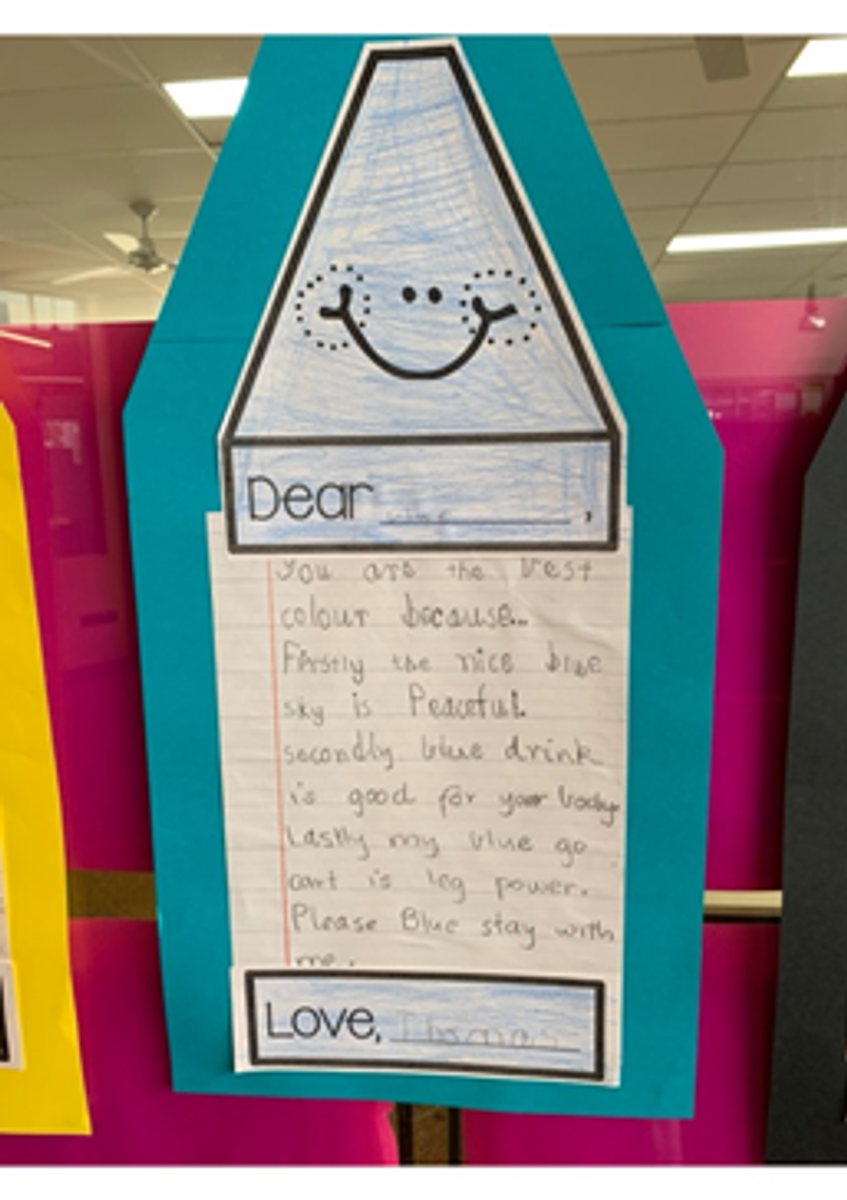 Dear blue,
You are the best
colour because...
Firstly the nice blue
sky is Peaceful.
secondly blue drink
is good for your body
Lastly my blue go
cart is leg power.
Please Blue stay with
me.
Love, Thomas